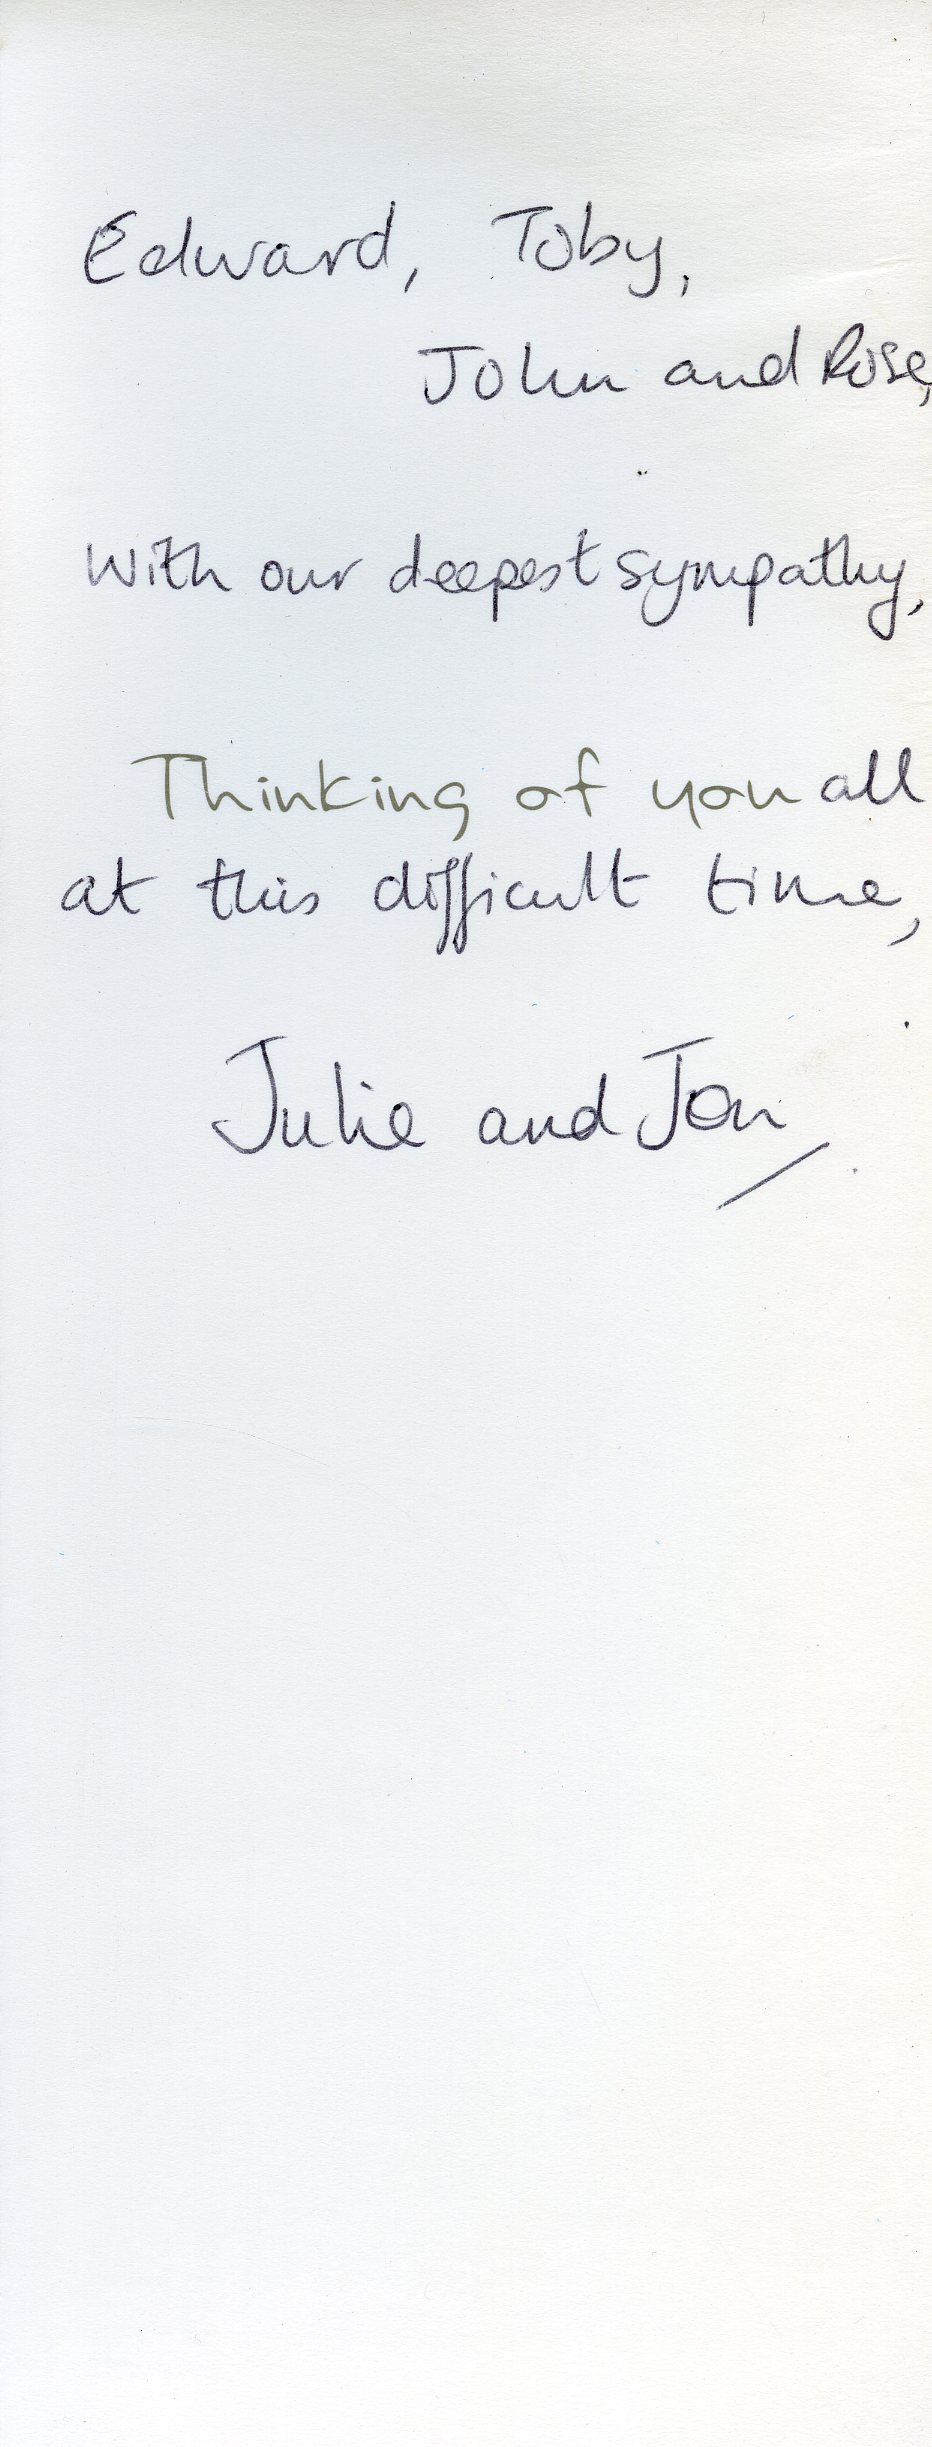 Edward, Toby,
John and Rose,
With our deepest sympathy,
Thinking of you all
at this difficult time,
Julie and Jon